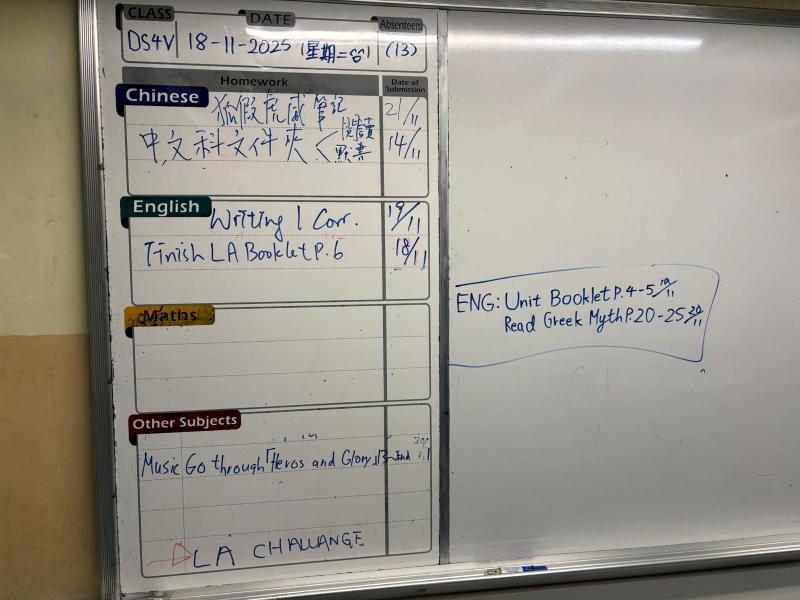 CLASS
DATE
Absentee(s)
DS4V 18-11-2025 (星期二) (13)
Homework
Date of Submission
Chinese
狐假虎威 筆記 21/11
中文科文件夾 < 閱讀 默書 14/11
English
Writing 1 Corr. 19/11
Finish LA Booklet P.6 18/11
Maths
Other Subjects
Music Go through「Heros and Glory」
LA CHALLANGE
ENG: Unit Booklet P.4-5 19/11
Read Greek Myth P.20-25 20/11